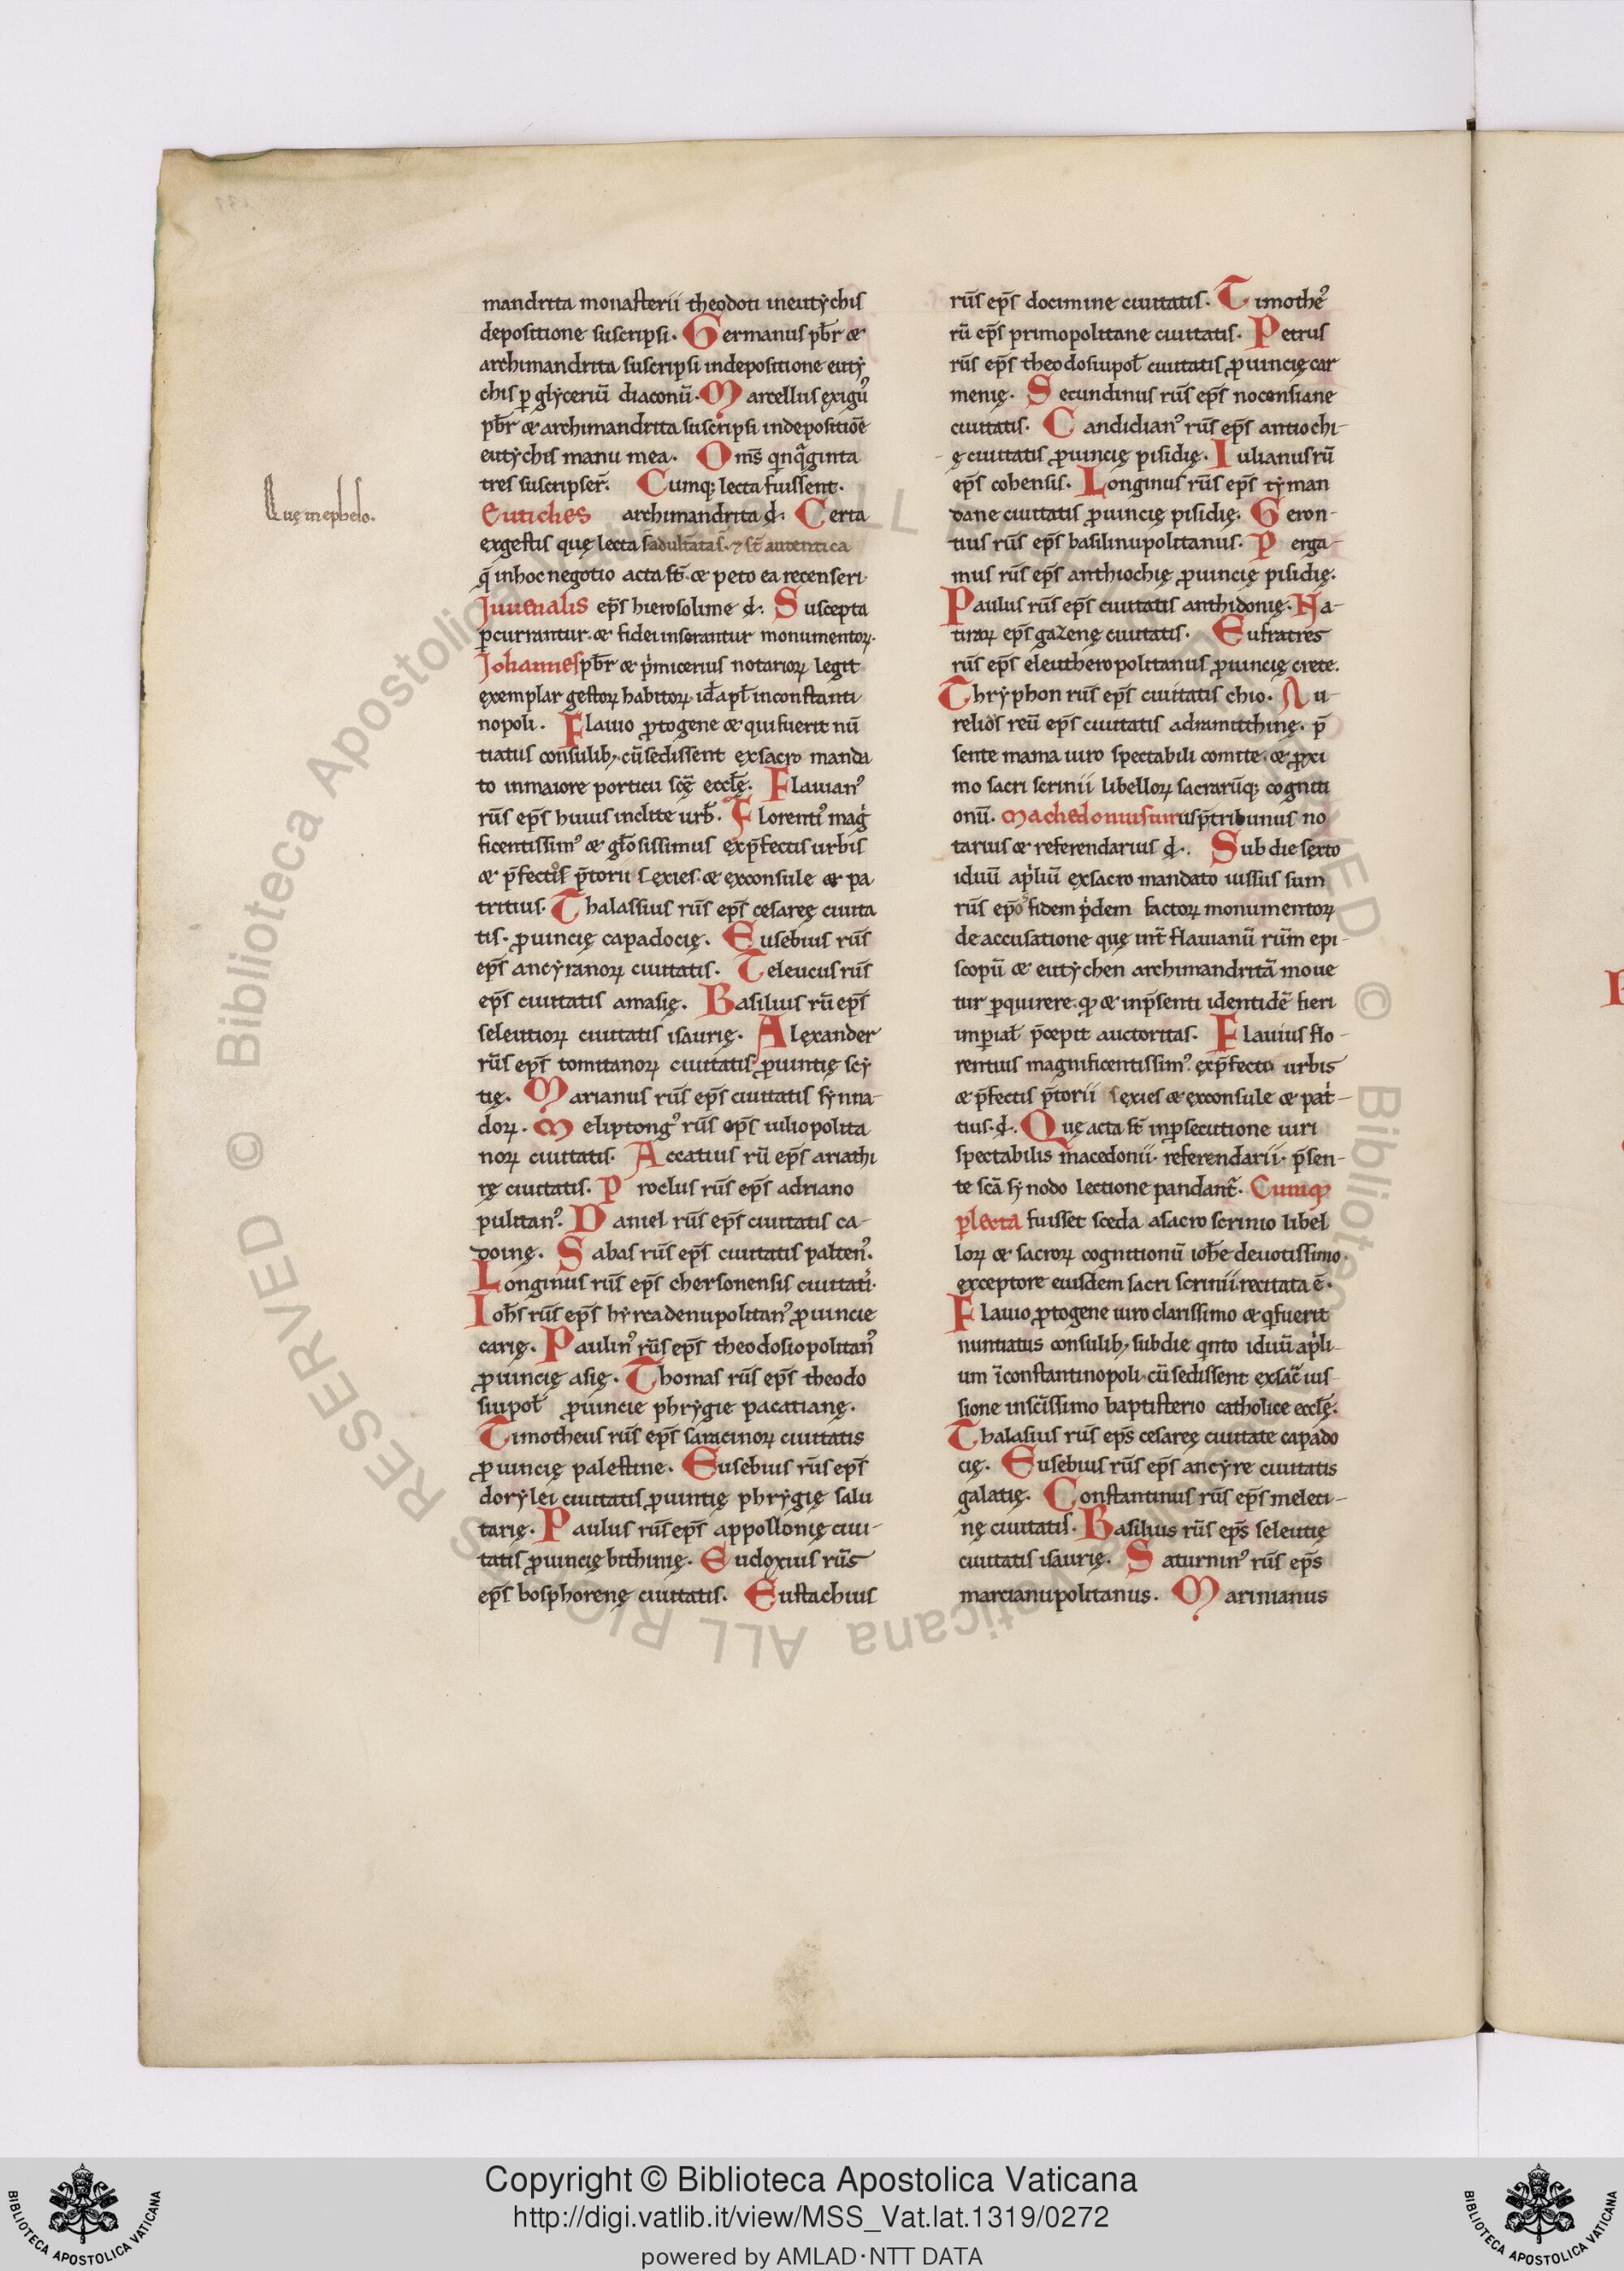 mandrita monasterii theodoti ineutychis
depositione suscripsi. Germanus pb̄r &
archimandrita suscripsi indepositione euty
chis ꝑ glyceriū diaconū. Marcellus exiguꝰ
pb̄r & archimandrita suscripsi indepositiōe
eutychis manu mea. Om̄s qͥnqᷓginta
tres suscripser̄. Cumq; lecta fuissent.
Eutiches archimandrita d̵. Certa
exgestis quę lecta s̄ adult̄ata s̄. ⁊ st̄ autentica
q̄ inhoc negotio acta st̄. & peto ea recenseri.
Juuenalis ep̄s hierosolime d̵. Suscepta
ꝑcurrantur. & fidei inserantur monumentoꝝ.
Johannes pb̄r & pͥmicerius notarioꝝ legit
exemplar gestoꝝ habitoꝝ. id̄ apł inconstanti
nopoli. Flauio ꝓtogene & qui fuerit nū
tiatus consulib;. cū sedissent exsacro manda
to inmaiore porticu scę̄ eccłę. Flauianꝰ
rūs ep̄s huius inclite urb̄. Florentiꝰ mag̍
ficentissimꝰ & gło̅sissimus exp̄fectis urbis
& p̄fectꝰs p̄torii sexies. & exconsule & pa
tritius. Thalassius rūs ep̄s cesaręę ciuita
tis. ꝓuincię capadocię. Eusebius rūs
ep̄s ancyranoꝝ ciuitatis. Teleucus rūs
ep̄s ciuitatis amasię. Basilius rū ep̄s
seleutioꝝ ciuitatis isaurię. Alexander
rūs ep̄s tomitanoꝝ ciuitatis ꝓuintię scy
tię. Marianus rūs ep̄s ciuitatis synna-
doꝝ. Meliptongꝰ rūs ep̄s iuliopolita
noꝝ ciuitatis. Accatius rū ep̄s ariathi
rę ciuitatis. Proclus rūs ep̄s adriano
pulitanꝰ. Daniel rūs ep̄s ciuitatis ca-
doinę. Sabas rūs ep̄s ciuitatis paltenꝰ.
Longinus rūs ep̄s chersonensis ciuitatiꝰ.
Ioh̄s rūs ep̄s hyrcadenupolitanꝰ ꝓuincie
carię. Paulinꝰ rūs ep̄s theodosiopolitanꝰ
ꝓuincię asię. Thomas rūs ep̄s theodo
siupoł ꝓuincie phrygie pacatianę.
Timotheus rūs ep̄s saracinoꝝ ciuitatis
ꝓuincię palestine. Eusebius rūs ep̄s
dorylei ciuitatis ꝓuintię phrygię salu
tarię. Paulus rūs ep̄s appollonię ciui-
tatis ꝓuincię bithinię. Eudoxius rūs
ep̄s bosphorenę ciuitatis. Eustachius
Quę in epheso.
rūs ep̄s docimine ciuitatis. Timotheꝰ
rū ep̄s primopolitane ciuitatis. Petrus
rūs ep̄s theodosiupoł ciuitatis ꝓuincię car
menię. Secundinus rūs ep̄s nocensiane
ciuitatis. Candidianꝰ rūs ep̄s antiochi-
ę ciuitatis ꝓuincię pisidię. Iulianus rū
ep̄s cobensis. Longinus rūs ep̄s tyman
dane ciuitatis ꝓuincię pisidię. Geron-
tius rūs ep̄s basilinupolitanus. Perga-
mus rūs ep̄s anthiochię ꝓuincię pisidię.
Paulus rūs ep̄s ciuitatis anthidonię. Na-
tiraꝝ ep̄s gazenę ciuitatis. Eufratres
rūs ep̄s eleutheropolitanus ꝓuincię crete.
Thryphon rūs ep̄s ciuitatis chio. Au-
relios reū ep̄s ciuitatis adramitthinę. p̄
sente mama uiro spectabili comite. & ꝓxi
mo sacri scrinii libelloꝝ sacrarūq; cogniti
onū. Machedonius uirus p̄ tribunus no
tarius & referendarius d̵. Sub die sexto
iduū apͥliū exsacro mandato iussus sum
rūs ep̄oꝰ fidem pͥdem factoꝝ monumentoꝝ
de accusatione quę int̄ flauianū rūm epi-
scopū & eutychen archimandritā moue
tur ꝑquirere. qꝫ & inp̄senti identidē fieri
imꝑiał p̄cepit auctoritas. Flauius flo-
rentius magnificentissimꝰ. exp̄fecto urbis
& p̄fectis p̄torii sexies & exconsule & pat̍-
tius. d̵. Quę acta st̄ inꝓsecutione uiri
spectabilis macedonii. referendarii. p̄sen-
te scā synodo lectione pandant᷑. Cumqꝫ
ꝑlecta fuisset sceda asacro scrinio libel
loꝝ & sacroꝝ cognitionū ioh̄e deuotissimo.
exceptore eiusdem sacri scrinii. recitata ē.
Flauio ꝓtogene uiro clarissimo & qͥ fuerit
nuntiatus consulib;. subdie qͥnto iduū apͥli-
um īconstantinopoli. cū sedissent exsac̄ ius-
sione insc̄issimo baptisterio catholice eccłę.
Thalasius rūs ep̄s cesaręę ciuitate capado
cię. Eusebius rūs ep̄s ancyre ciuitatis
galatię. Constantinus rūs ep̄s meleti-
nę ciuitatis. Basilius rūs ep̄s seleutię
ciuitatis isaurię. Saturninꝰ rūs ep̄s
marcianupolitanus. Marinianus
Copyright © Biblioteca Apostolica Vaticana
http://digi.vatlib.it/view/MSS_Vat.lat.1319/0272
powered by AMLAD·NTT DATA
BIBLIOTECA APOSTOLICA VATICANA
BIBLIOTECA APOSTOLICA VATICANA